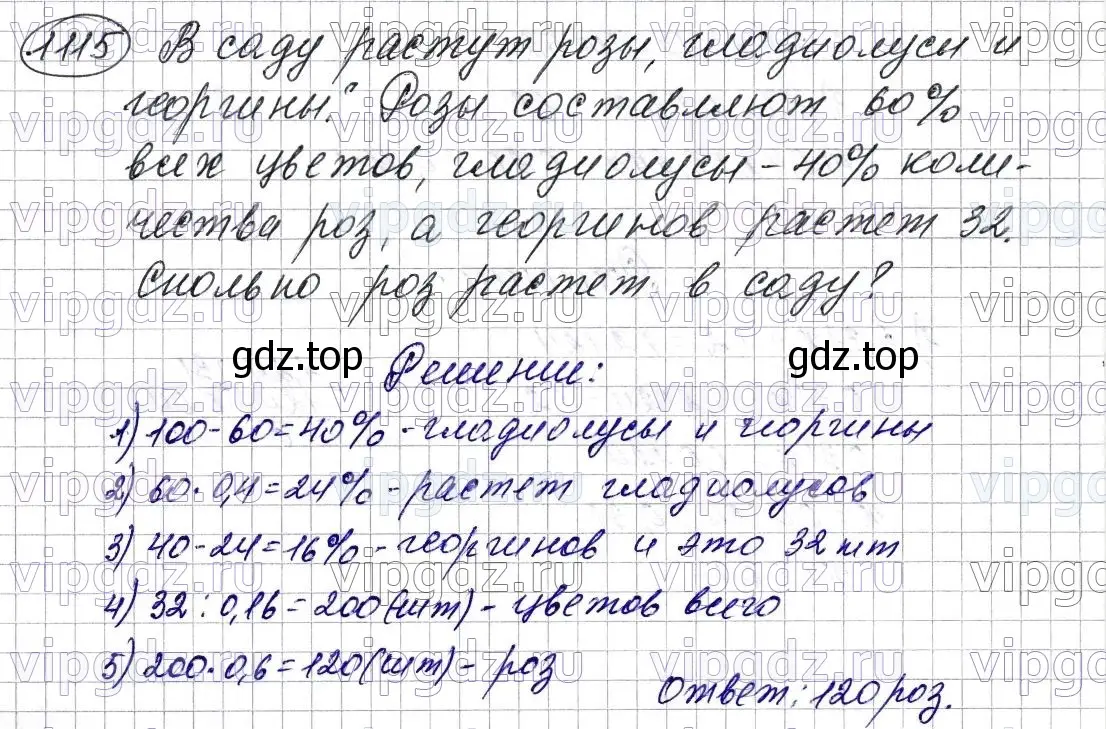 1115 В саду растут розы, гладиолусы и
георгины. Розы составляют 60%
всех цветов, гладиолусы - 40% коли-
чества роз, а георгинов растет 32.
Сколько роз растет в саду?
gdz.top gdz.top
Решение:
1) 100-60=40% - гладиолусы и георгины
2) 60·0,4=24% - растет гладиолусов
3) 40-24=16% - георгинов и это 32 шт
4) 32:0,16=200(шт) - цветов всего
5) 200·0,6=120(шт) - роз
Ответ: 120 роз.
vipgdz.ru